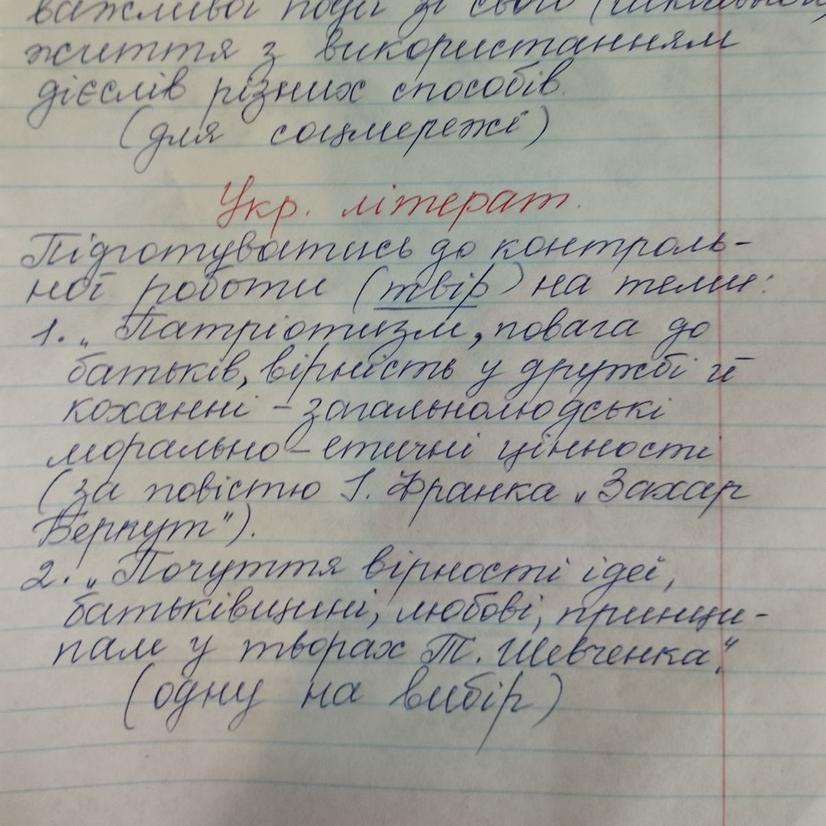 важливої події зі свого (шкільного)
життя з використанням
дієслів різних способів.
(для соцмережі)
Укр. літерат.
Підготуватись до контроль-
ної роботи (твір) на теми:
1. „Патріотизм, повага до
батьків, вірність у дружбі й
коханні – загальнолюдські
морально-етичні цінності
(за повістю І. Франка „Захар
Беркут").
2. „Почуття вірності ідеї,
батьківщині, любові, принци-
пам у творах Т. Шевченка".
(одну на вибір)